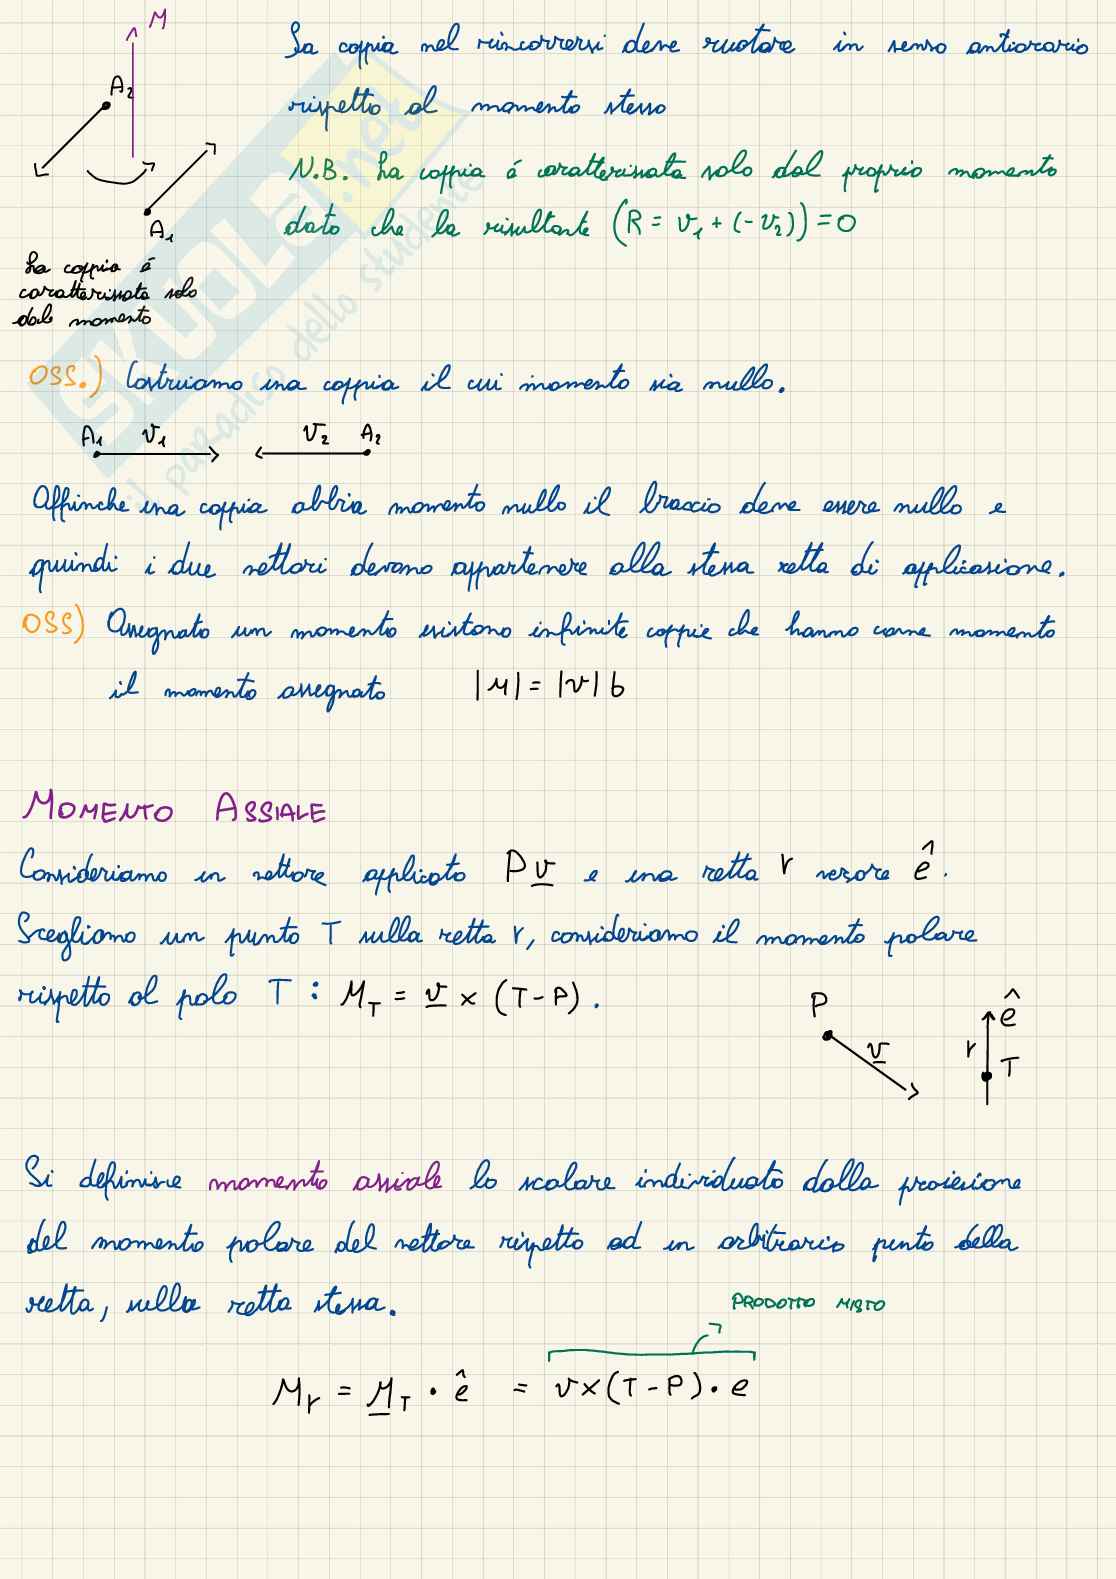 M
A₂
A₁
La coppia é
caratterizzata solo
dal momento
La coppia nel rincorrersi deve ruotare in senso antiorario
rispetto al momento stesso
N.B. La coppia é caratterizzata solo dal proprio momento
dato che la risultante (R = v₁ + (-v₂)) = 0
OSS.) Costruiamo una coppia il cui momento sia nullo.
A₁ v₁ v₂ A₂
Affinche una coppia abbia momento nullo il braccio deve essere nullo e
quindi i due vettori devono appartenere alla stessa retta di applicazione.
OSS) Assegnato un momento esistono infinite coppie che hanno come momento
il momento assegnato |M| = |v| b
MOMENTO ASSIALE
Consideriamo un vettore applicato P v e una retta r versore ê.
Scegliamo un punto T sulla retta r, consideriamo il momento polare
rispetto al polo T : M_T = v × (T - P).
P v r ê T
Si definisce momento assiale lo scalare individuato dalla proiezione
del momento polare del vettore rispetto ad un arbitrario punto della
retta, sulla retta stessa.
PRODOTTO MISTO
M_r = M_T · ê = v × (T - P) · e
SKUOLA.net
il paradiso dello studente